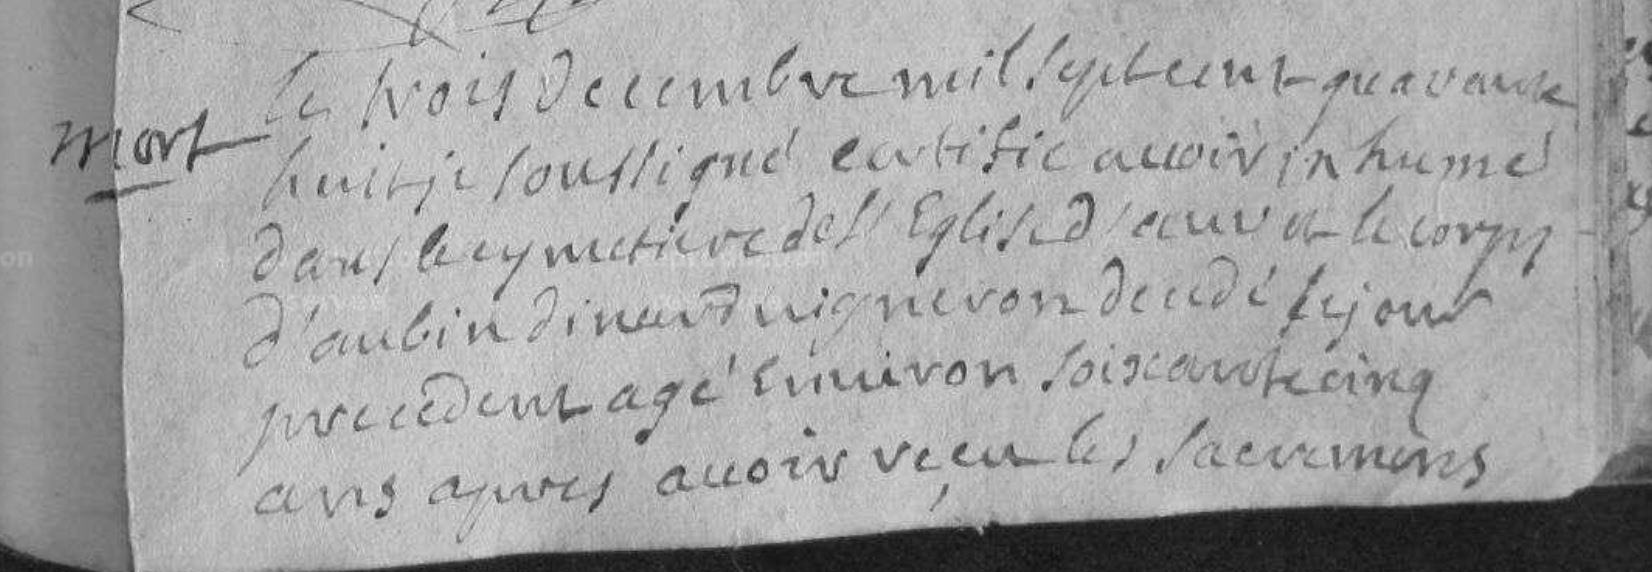 le trois decembre mil sept cent quarante
mort
huit je soussigné certifie avoir inhumé
dans le cymetiere de l'Eglise d' le corps
d'aubin dinard vigneron decedé le jour
precedent agé Environ soixante cinq
ans apres avoir reçeu les sacremens